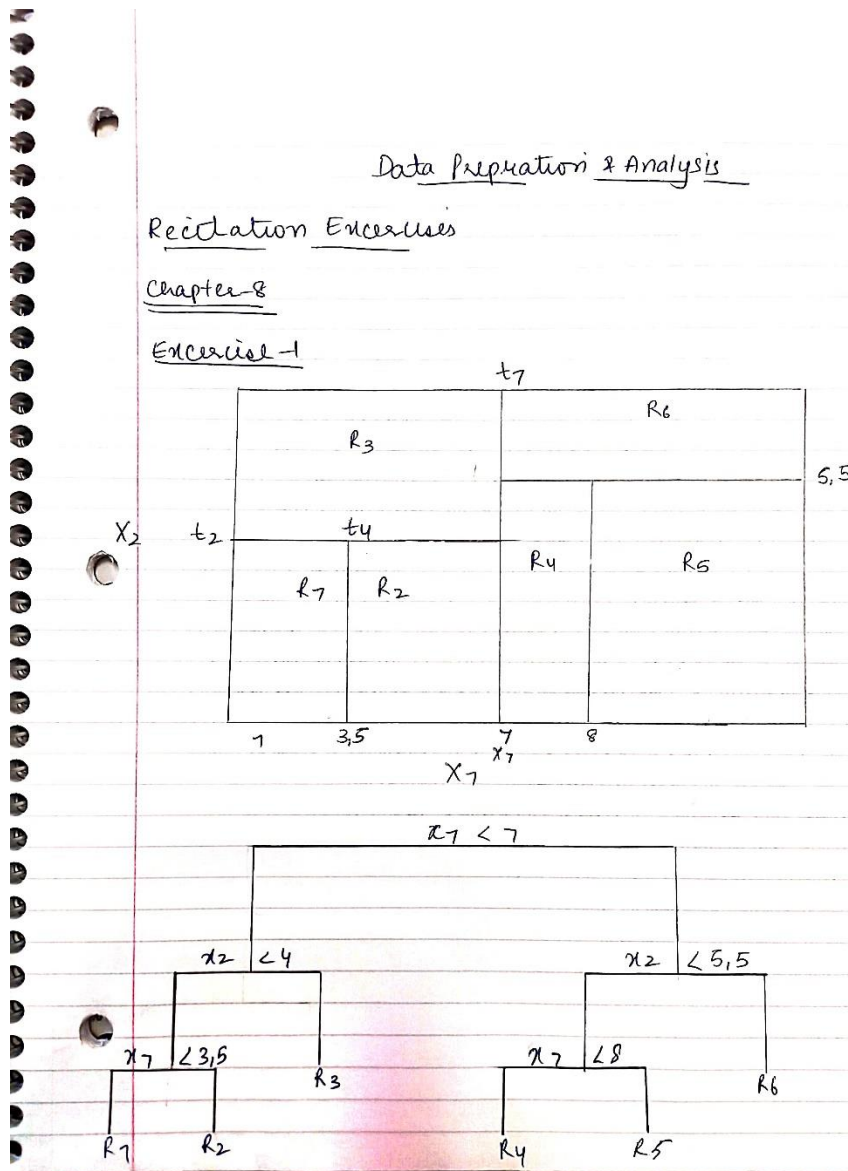 Data Prepration & Analysis
Recitation Excercises
Chapter-8
Excercise-1
t7
R6
R3
5,5
X2 t2 t4
R4 R5
R7 R2
1 3,5 7 8
x7
X7
x7 < 7
x2 <4 x2 <5,5
x7 <3,5 x7 <8
R3 R6
R7 R2 R4 R5